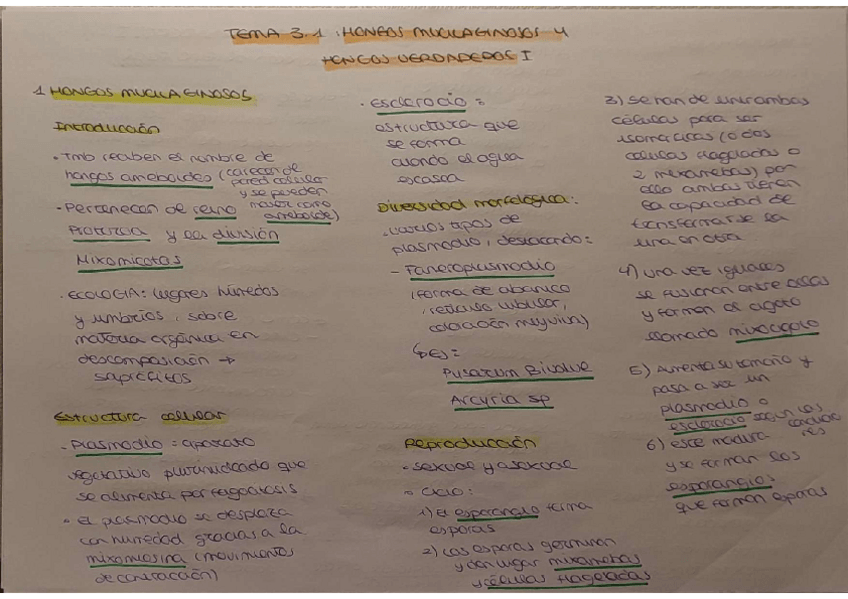 TEMA 3.1: HONGOS MUCILAGINOSOS Y
HONGOS VERDADEROS I
1 HONGOS MUCILAGINOSOS
Introducción
• Tmb reciben el nombre de
hongos ameboides (carecen de
pared celular
y se pueden
mover como
ameboide)
• Pertenecen al reino
Protozoa y la división
Mixomicotas
• ECOLOGIA: lugares húmedos
y umbríos, sobre
materia orgánica en
descomposición →
saprófitos
Estructura celular
- Plasmodio: aparato
vegetativo plurinucleado que
se alimenta por fagocitosis
• El plasmodio se desplaza
con humedad gracias a la
mixomiosina (movimientos
de contracción)
• Esclerocio:
estructura que
se forma
cuando el agua
escasea
Diversidad morfológica:
. varios tipos de
plasmodio, destacando:
- Faneroplasmodio
(forma de abanico
, retículo tubular,
coloración muy viva)
↳ Ej:
Physarum Bivalve
Arcyria sp
Reproducción
• sexual y asexual
• Ciclo:
1) El esporangio forma
esporas
2) Las esporas germinan
y dan lugar mixamebas
y células flageladas
3) Se han de unir ambas
células para ser
isomáticas (o dos
células flageladas o
2 mixamebas) por
ello ambas tienen
la capacidad de
transformarse la
una en otra
4) una vez iguales
se fusionan entre ellas
y forman el cigoto
llamado mixocigoto
5) Aumenta su tamaño y
pasa a ser un
plasmodio o
esclerocio según las
condiciones
6) este madura
y se forman los
esporangios
que forman esporas